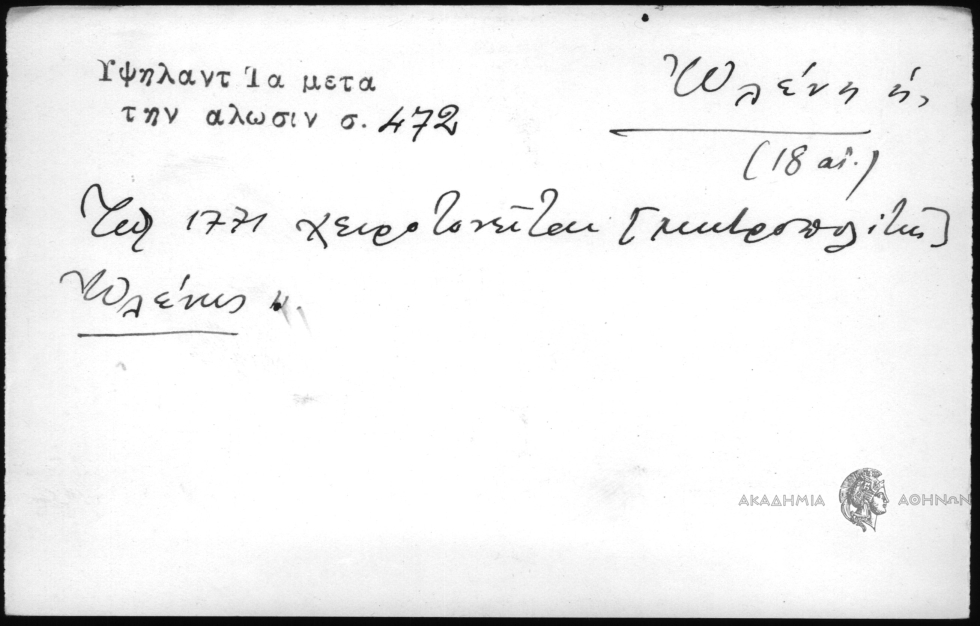 Υψηλαντ Ία μετα
την αλωσιν σ. 472
Ὠλένη ἡ,
(18 αἰ.)
Τῷ 1771 χειροτονεῖται [μητροπολίτης]
Ὠλένης
ΑΚΑΔΗΜΙΑ ΑΘΗΝΩΝ